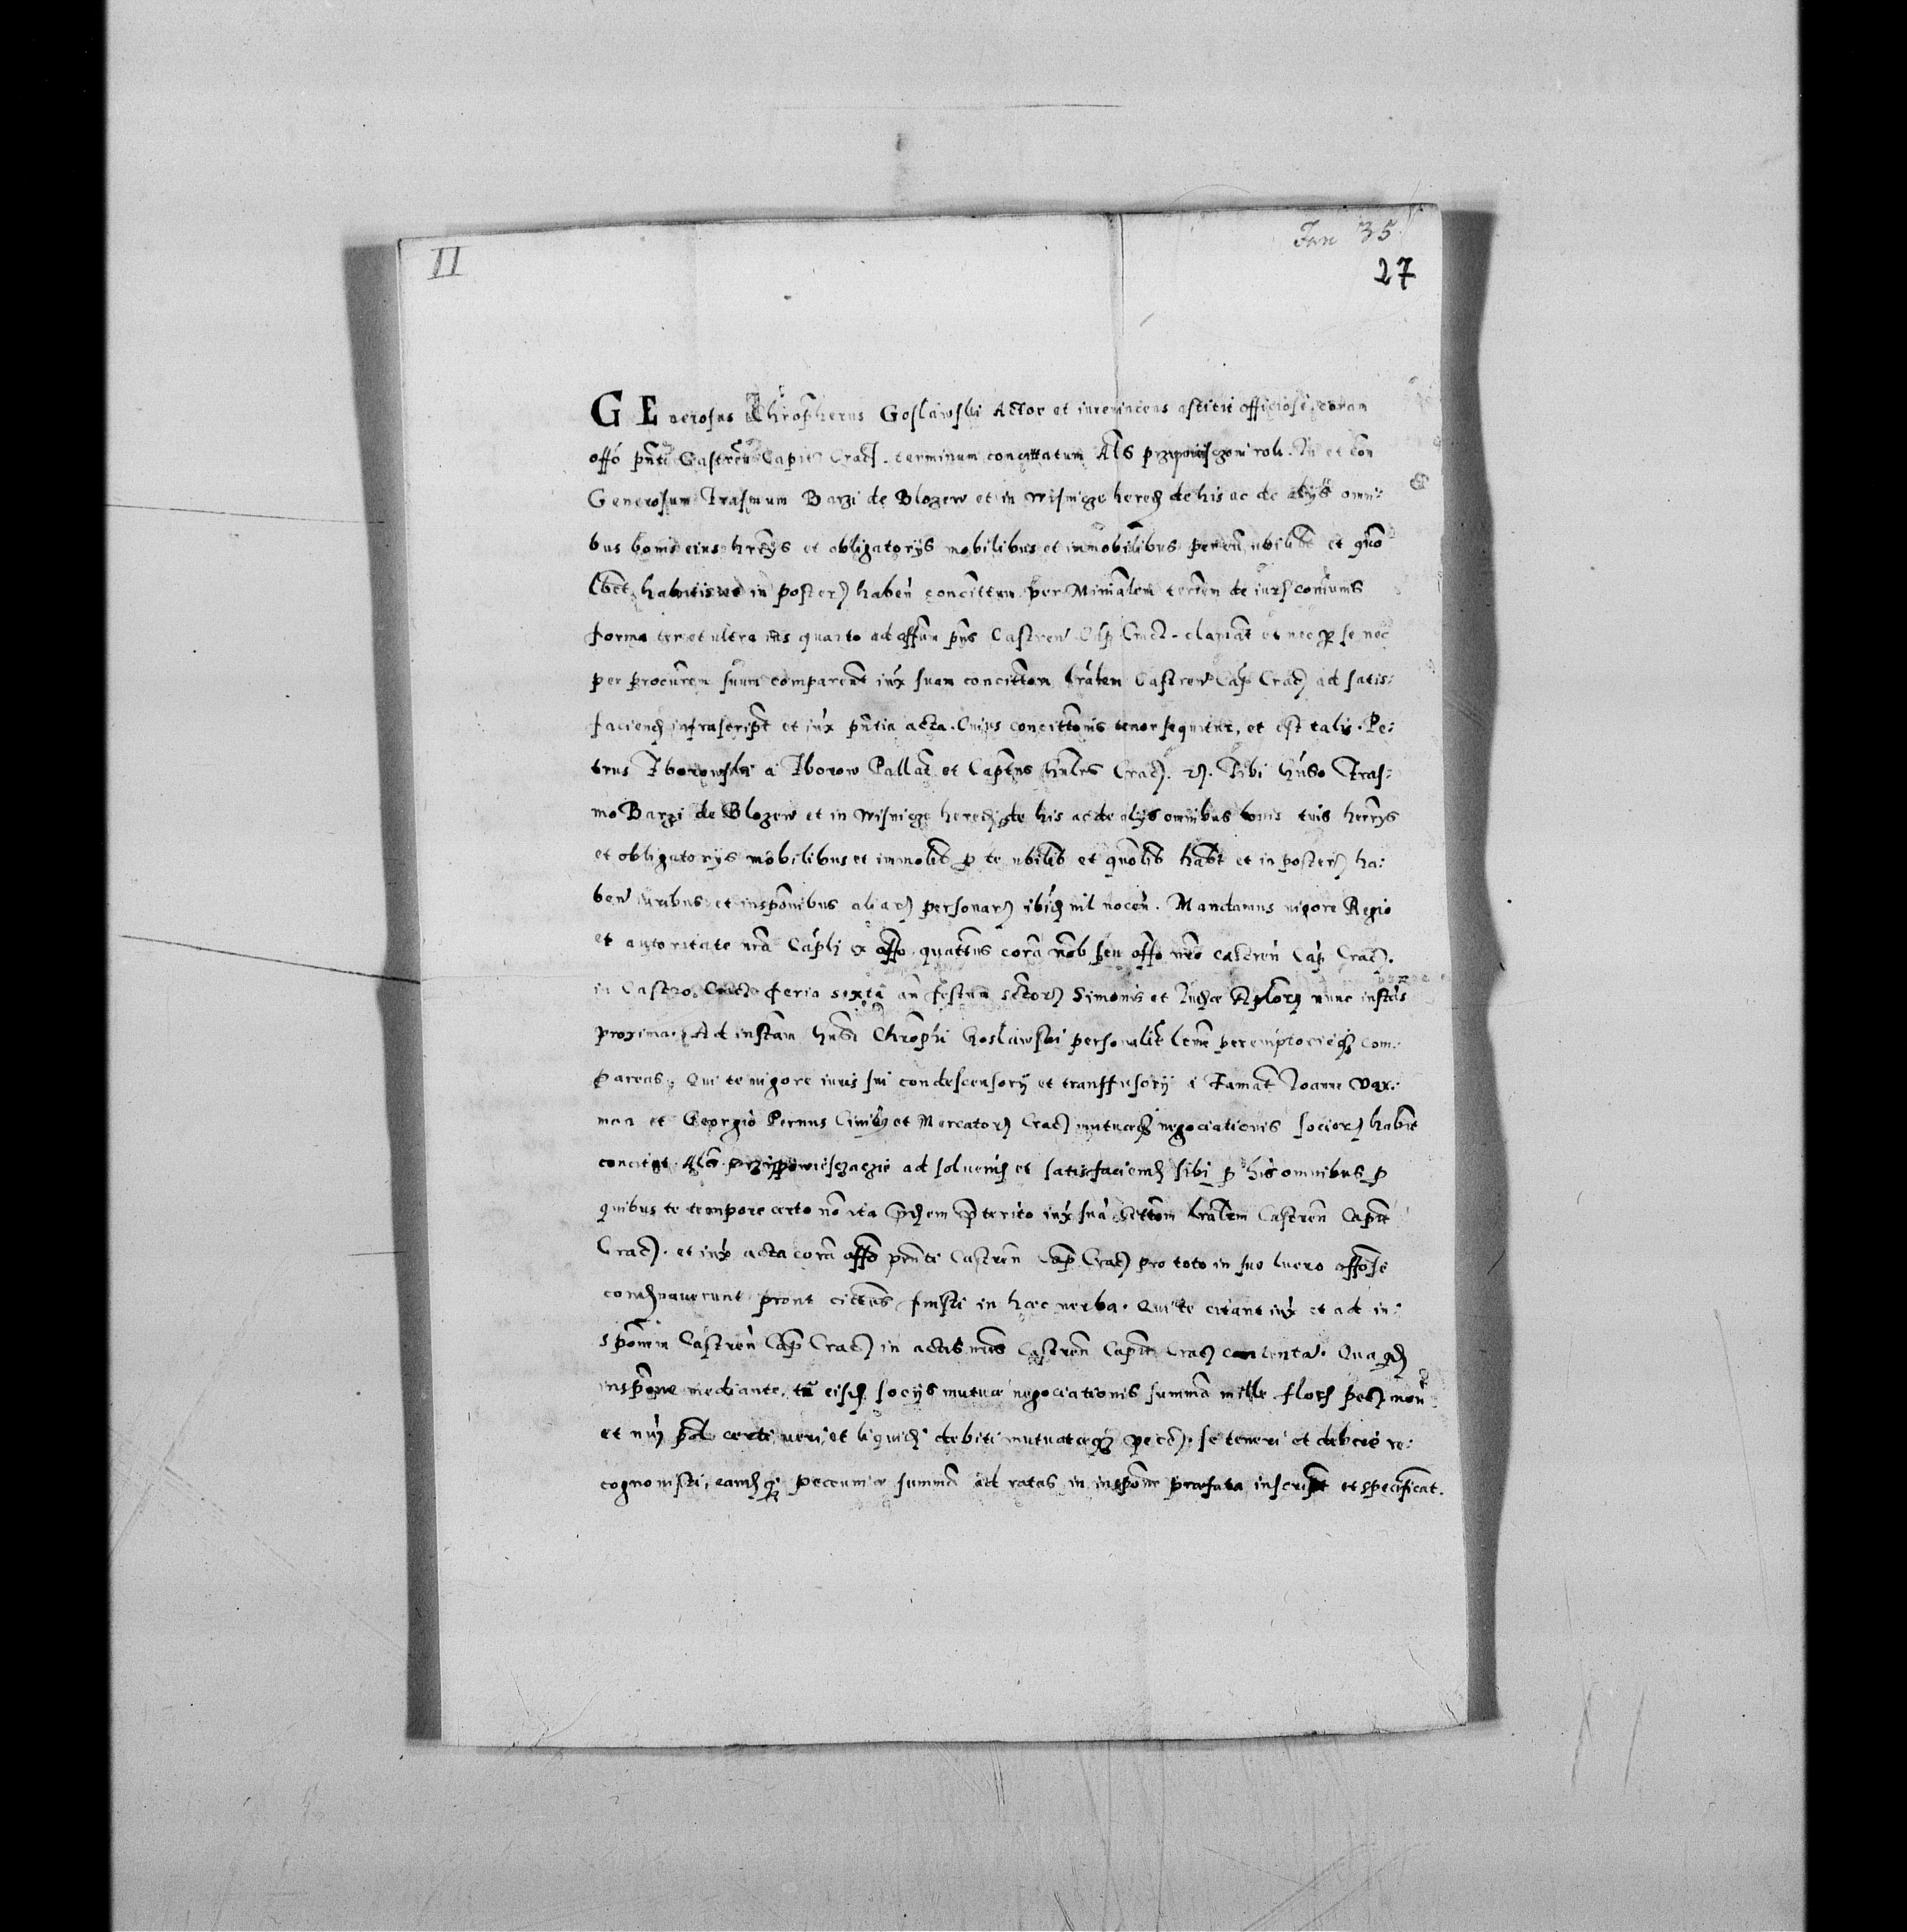 II
Jan 35
27
GEnerosus Chrophe͂rus Goslawski Actor et iurevincens astitit officiose, coram
offo pñti Castreñ Capit Crac. terminum concittatum Als przipowiesczoni rok. In et con
Generosum Erasmum Barzi de Blozew et in Wisnicze hered de his ac de alÿs omni:
bus bonis eius hrrÿs et obligatorÿs mobilibus et immobilibus per eũ ubilibt et quo
lbet habitis et in poster habeñ concittum per Miniālem terrem de iure coñiunis
forma ter et ultra ius quarto ad offūm pñs Castreñ Cap Crac. clamat et nec p se nec
per procurem suum comparent iux suam concittom lrālem Castreñ Cap Crac ad satis:
faciend infrascript et iux pñtia acta. Cuius concittonis tenor sequitur, et est talis. Pe:
trus Zborowski a Zborow Pallat et Capneus Gnlis Crac. Tibi Gnso Eras:
mo Barzi de Blozew et in Wisnicze hered de his ac de alÿs omnibus bonis tuis hrrÿs
et obligatorÿs mobilibus et immolib p te ubilib et quolib habt et in poster ha:
beñ iuribus et insponibus aliar personar ibid nil noceñ. Mandamus vigore Regio
et autoritate nra Capli ex offo, quattus corā nob seu offo nro castreñ Cap Crac.
in Castro Crac feria sexta añ festum sctor Simonis et Iudæ Aplor nunc instās
proxima. Ad instām Gnsi Chrophi Goslawski personalit lrme peremptorieq com:
pareas, Qui te vigore iuris sui condescensorÿ et transfusorÿ a Famat Ioanne Vax:
man et Georgio Pernus Civibus et Mercator Crac mutuæq negociationis socior habit
concitat Als przipowiesczaczie ad solvend et satisfaciend sibi p his omnibus p
quibus te tempore certo nō ita pridem pterito iux suā cittom lrālem Castreñ Capit
Crac. et iux acta corā offo pñti Castreñ Cap Crac pro toto in suo lucro offose
condnaverunt prout citatus fuisti in hæc verba. Qui te citant iux et ad in:
sponem Castreñ Cap Crac in actis nris Castreñ Capit Crac contenta. Qua qd
inspone mediante, tu eisd socÿs mutuæ negociationis summā mille flor pec mon
et nu pol certi veri, et liquidi debiti mutuatæq pec. se teneri et debere re:
cognovisti, eandq peccuniæ summā ad ratas in inspone præfata inscript et specificat.